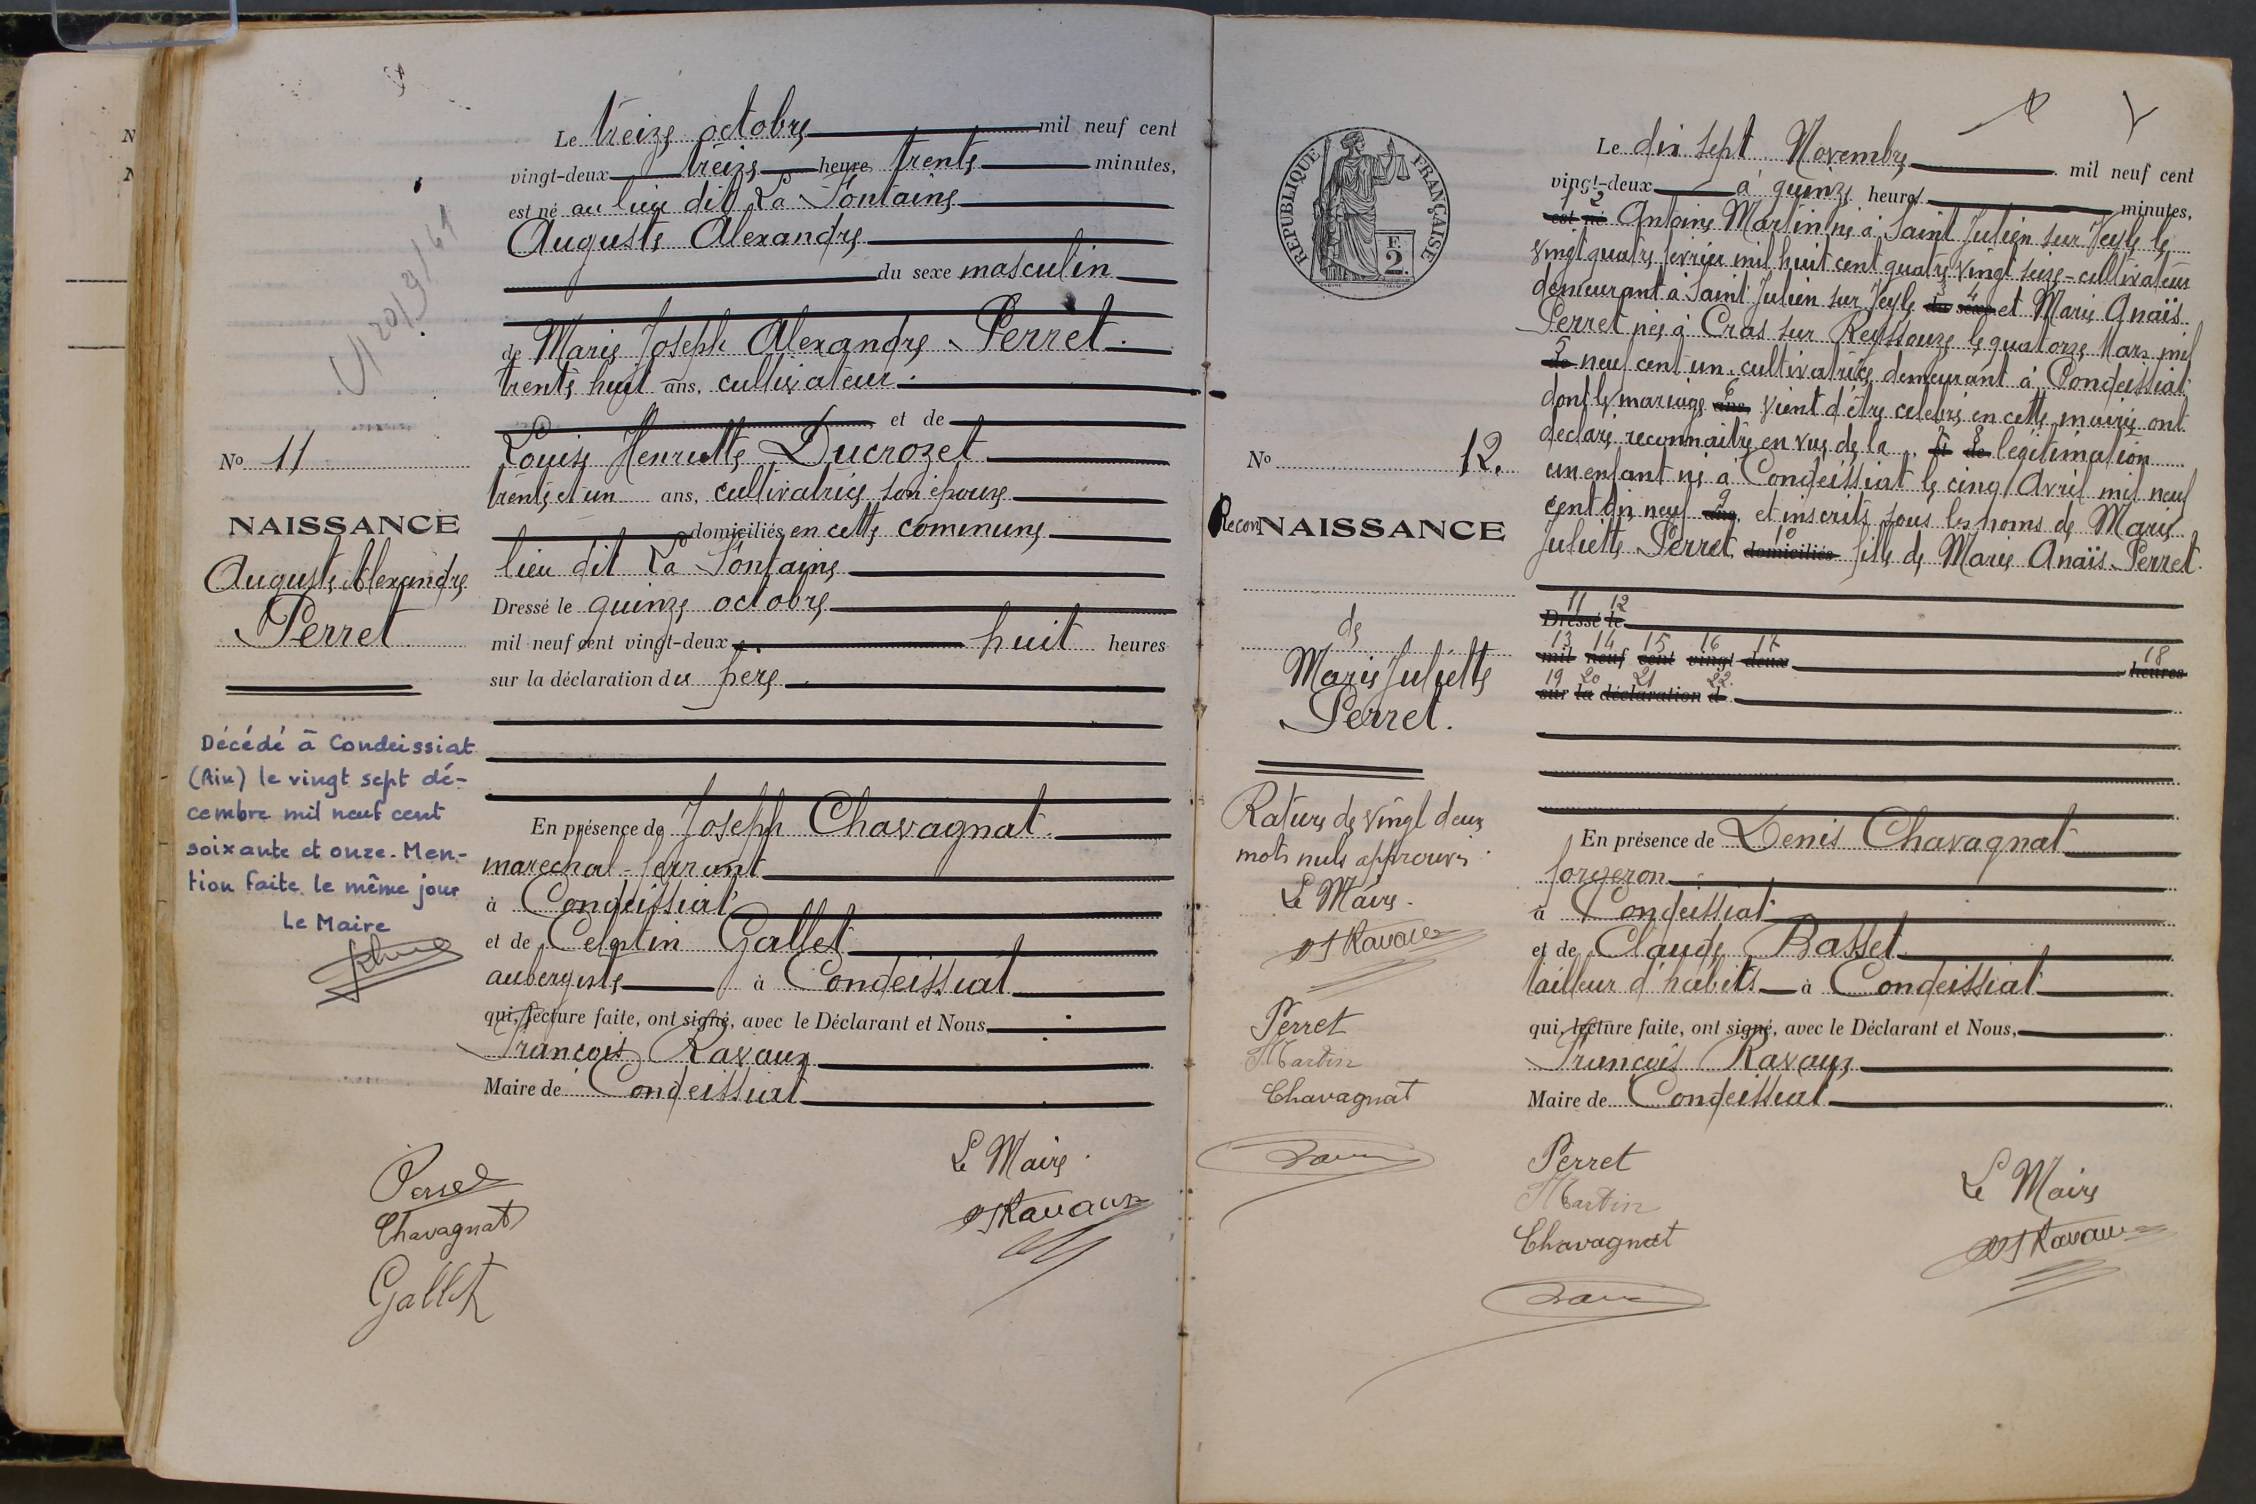 Le treize octobre mil neuf cent
vingt-deux treize heure trente minutes,
est né au lieu dit La Fontaine
Auguste Alexandre
du sexe masculin
de Marie Joseph Alexandre Perret.
trente huit ans, cultivateur.
et de
Louise Henriette Ducrozet
trente et un ans, cultivatrice son épouse
domiciliés en cette commune
lieu dit La Fontaine
Dressé le quinze octobre
mil neuf cent vingt-deux huit heures
sur la déclaration du père
En présence de Joseph Chavagnat
marechal-ferrant
à Condeissiat
et de Celestin Gallet
aubergiste à Condeissiat
qui, lecture faite, ont signé, avec le Déclarant et Nous
François Ravaux
Maire de Condeissiat
Le Maire
Perret
Chavagnat
Gallet
Ravaux
No 11
NAISSANCE
Auguste Alexandre
Perret
Décédé à Condeissiat
(Ain) le vingt sept dé-
cembre mil neuf cent
soixante et onze. Men-
tion faite le même jour
Le Maire
RÉPUBLIQUE FRANÇAISE
E
2.
Le dix sept Novembre mil neuf cent
vingt-deux à quinze heures minutes,
1 2
est né Antoine Martin né à Saint Julien sur Veyle le
vingt quatre fevrier mil huit cent quatre vingt seize - cultivateur
3 4
demeurant à Saint Julien sur Veyle du sexe et Marie Anaïs
Perret née à Cras sur Reyssouze le quatorze Mars mil
5
de neuf cent un. cultivatrice demeurant à Condeissiat
6
dont le mariage ans, vient d'être celebré en cette mairie ont
7 8
declaré reconnaitre en vue de la et de legitimation
un enfant né à Condeissiat le cinq Avril mil neuf
9
cent dix neuf ans, et inscrite sous les noms de Marie
10
Juliette Perret, domiciliés fille de Marie Anaïs Perret.
11 12
Dressé le
13 14 15 16 17 18
mil neuf cent vingt-deux heures
19 20 21 22
sur la déclaration d
En présence de Denis Chavagnat
forgeron
à Condeissiat
et de Claude Basset
tailleur d'habits à Condeissiat
qui, lecture faite, ont signé, avec le Déclarant et Nous,
François Ravaux
Maire de Condeissiat
Perret
Martin
Chavagnat
Le Maire
Ravaux
No 12.
ReconNAISSANCE
de
Marie Juliette
Perret.
Rature de vingt deux
mots nuls approuvé
Le Maire.
Ravaux
Perret
Martin
Chavagnat